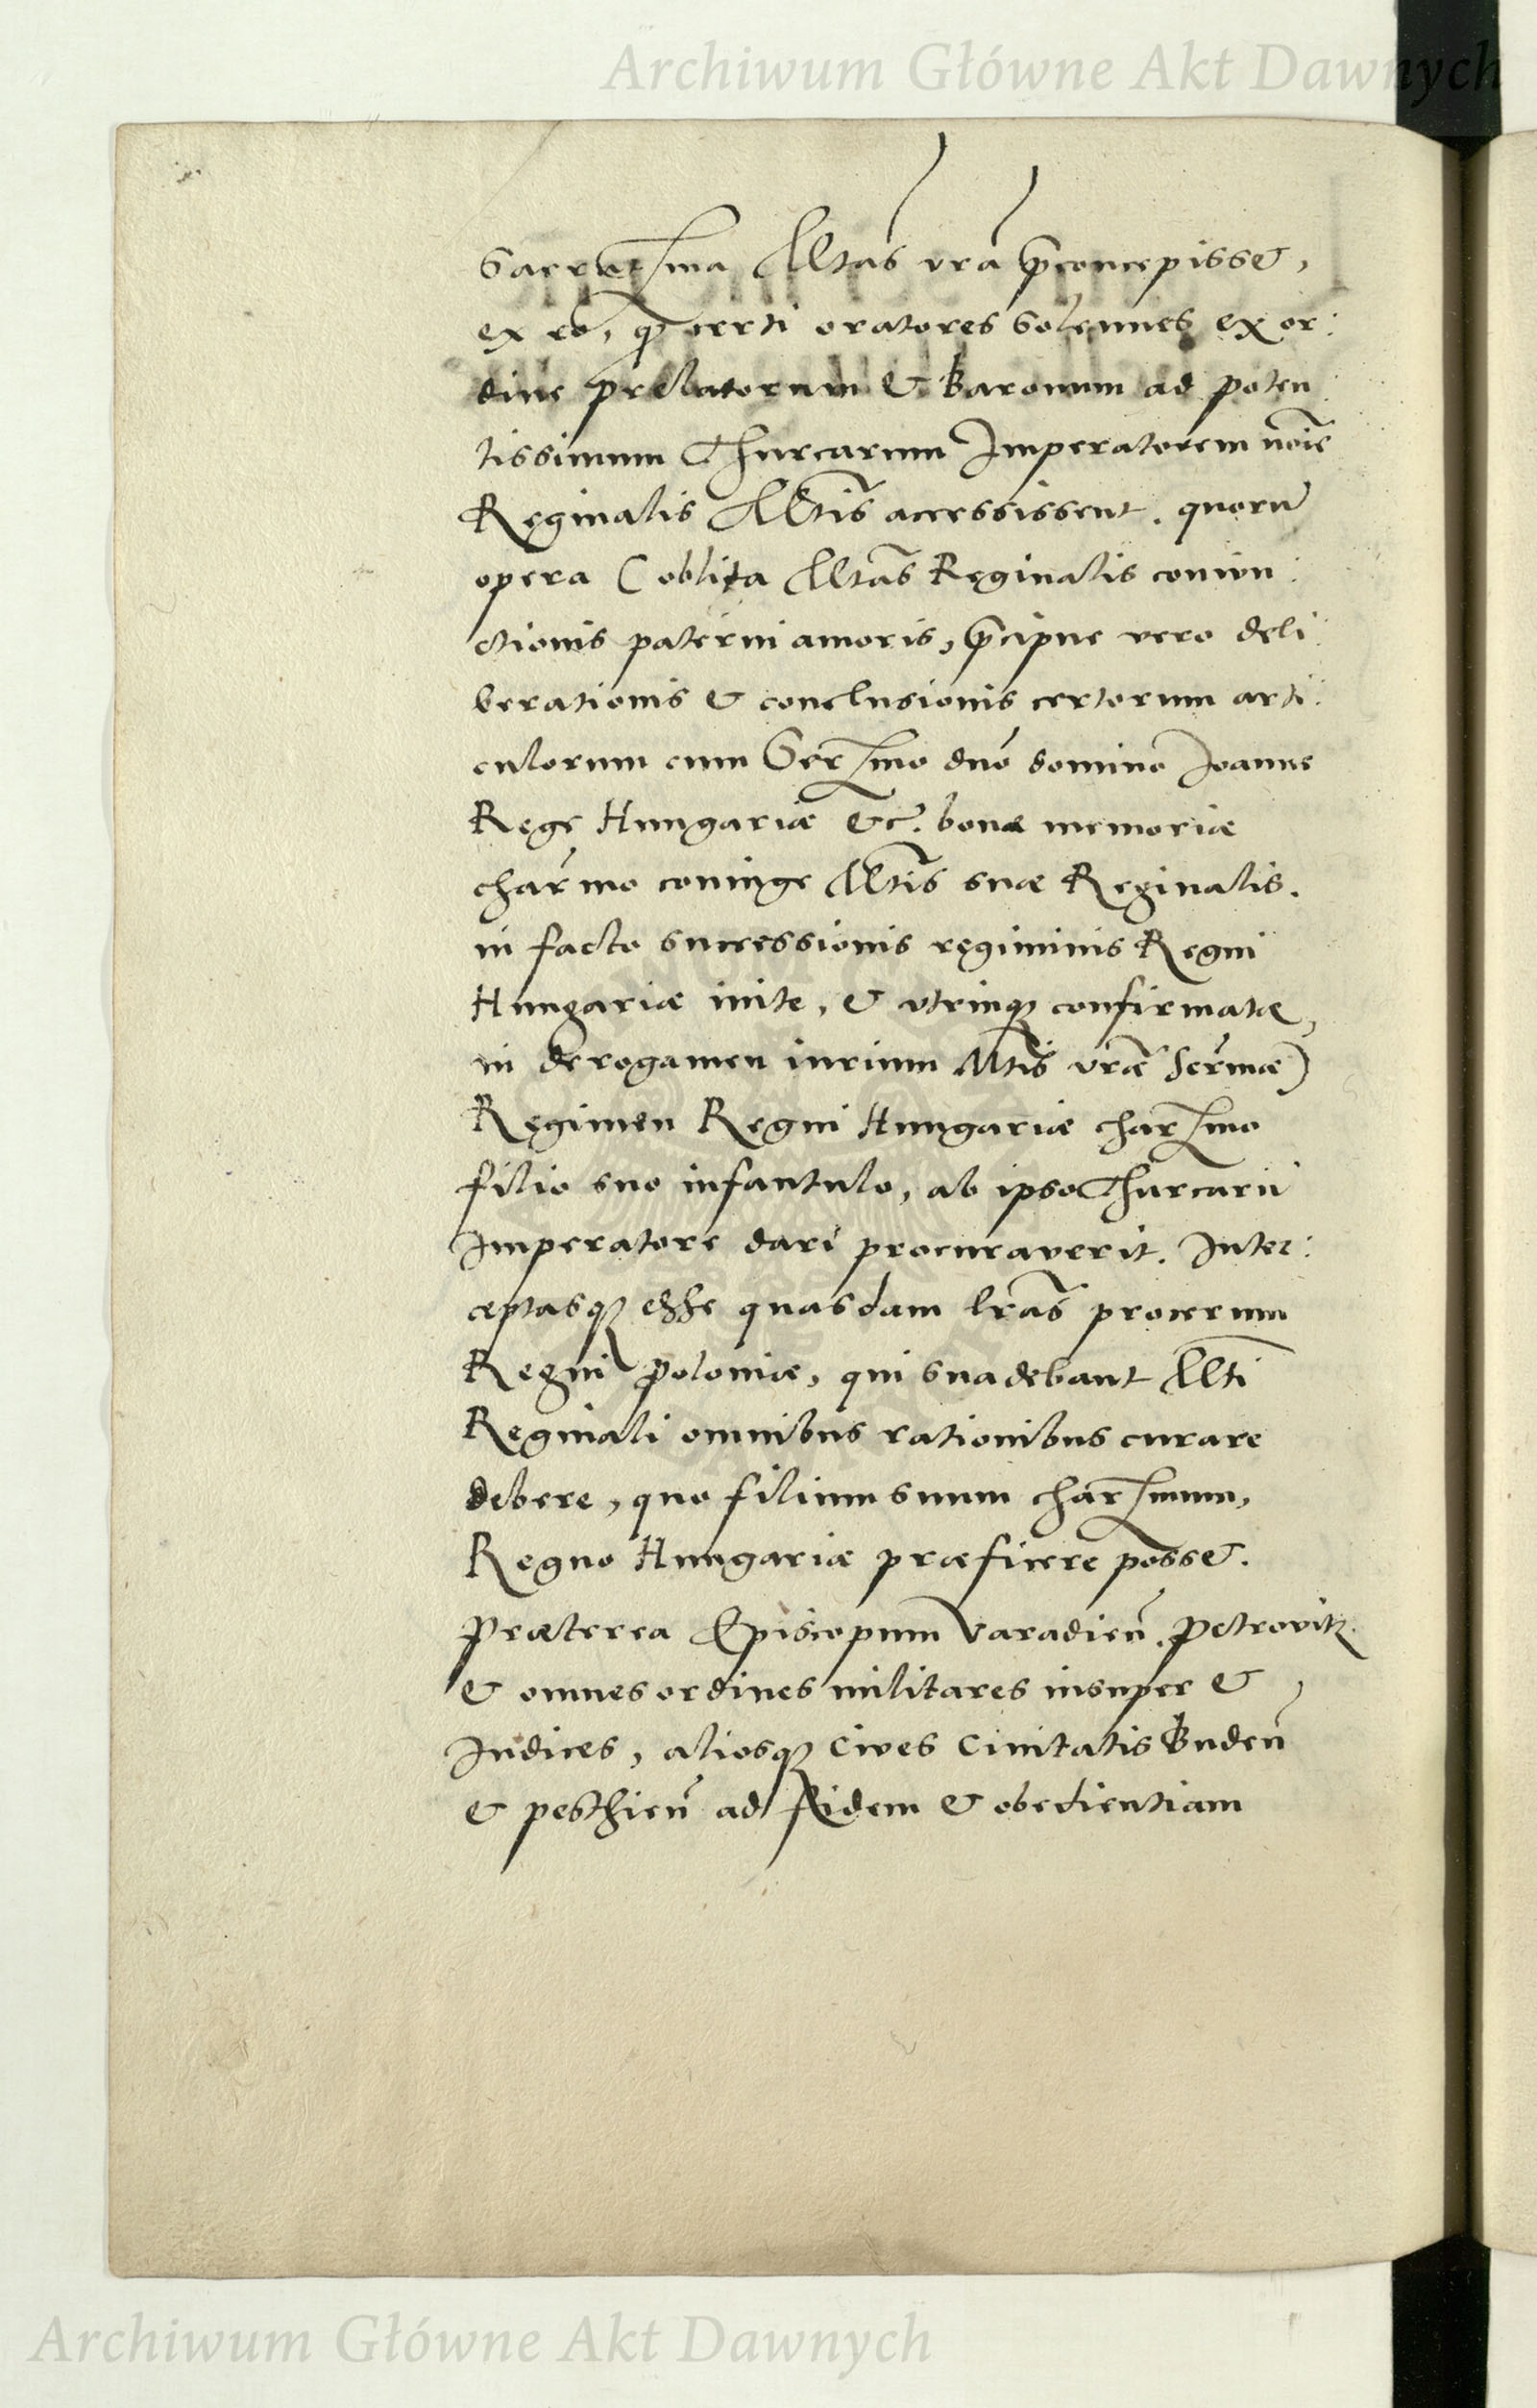 Archiwum Główne Akt Dawnych
Sacratissma Mtas vrã p̃concepisset,
ex eo, q̃ certi oratores Solennes ex or:
dine prelatorum & Baronum ad poten
tissimum Thurcarum Imperatorem noĩe
Reginalis Mtis acessissent. quorũ
opera (oblita Mtas Reginalis coniun:
ctionis paterni amoris, p̃cipue vero deli:
berationis & conclusionis certorum arti:
culorum cum Serssmo dnõ domino Joanne
Rege Hungariæ &c. bonæ memoriæ
charmo coniuge Mtis suæ Reginalis.
in facto sucessionis regiminis Regni
Hungariæ inite, & vtrinq; confirmatæ,
in derogamen iurium Mtis vræ Sermæ)
Regimen Regni Hungariæ charssmo
filio suo infantulo, ab ipso Thurcarũ
Imperatore dari procuraverit. Inter:
ceptasq; esse quasdam lr̃as procerum
Regni Poloniæ, qui suadebant Mti
Reginali omnibus rationibus curare
debere, quo filium suum charssmum,
Regno Hungariæ præficere posset.
Præterea Episcopum Varadieñ. Petrovitz.
& omnes ordines militares insuper &
Iudices, aliosq; Cives Civitatis Budeñ
& pesthieñ ad fidem & obedientiam
Archiwum Główne Akt Dawnych